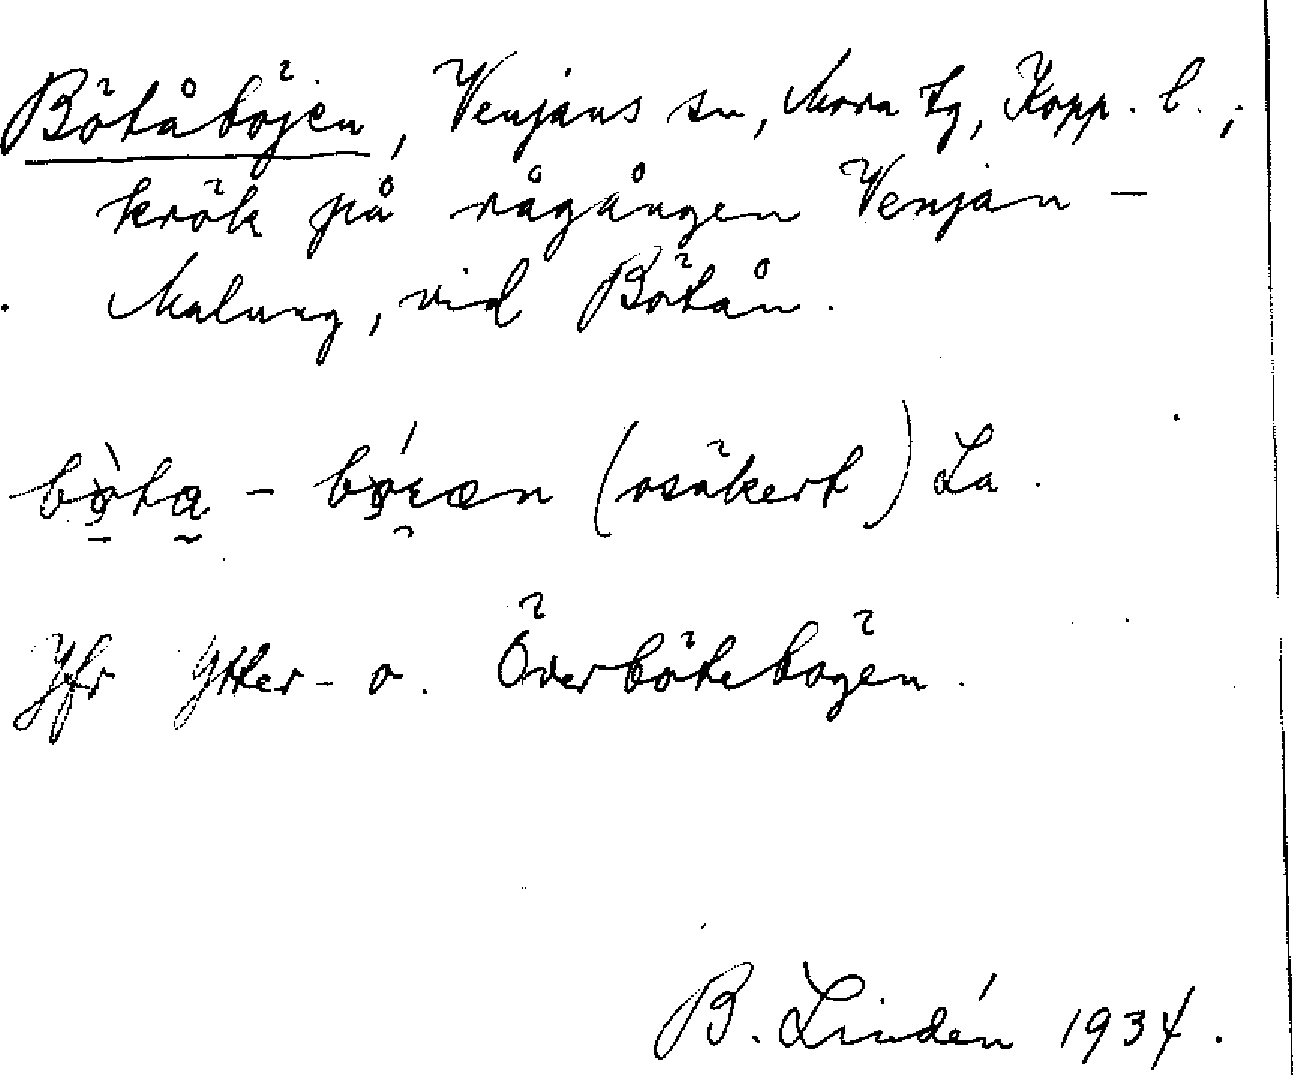 Bötåböjen, Venjans sn, Mora tg, Kopp. l.;
krök på rågången Venjan –
Malung, vid Bötån.
(osäkert) La.
Jfr Ytter- o. Överbötebögen.
B. Lindén 1934.